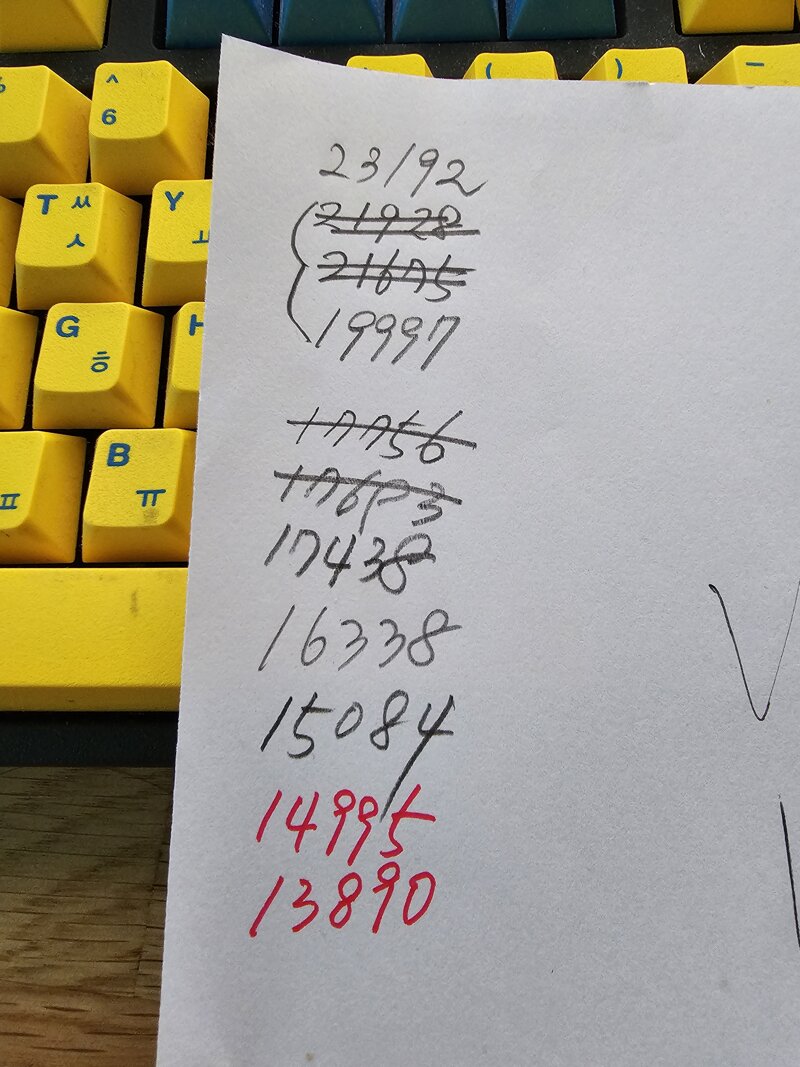 ^
6
(
)
T ㅆ
ㅅ
Y
ㅛ
G
ㅎ
H
B
ㅠ
ㅍ
23192
21928
21675
19997
17756
17693
17438
16338
15084
14995
13890